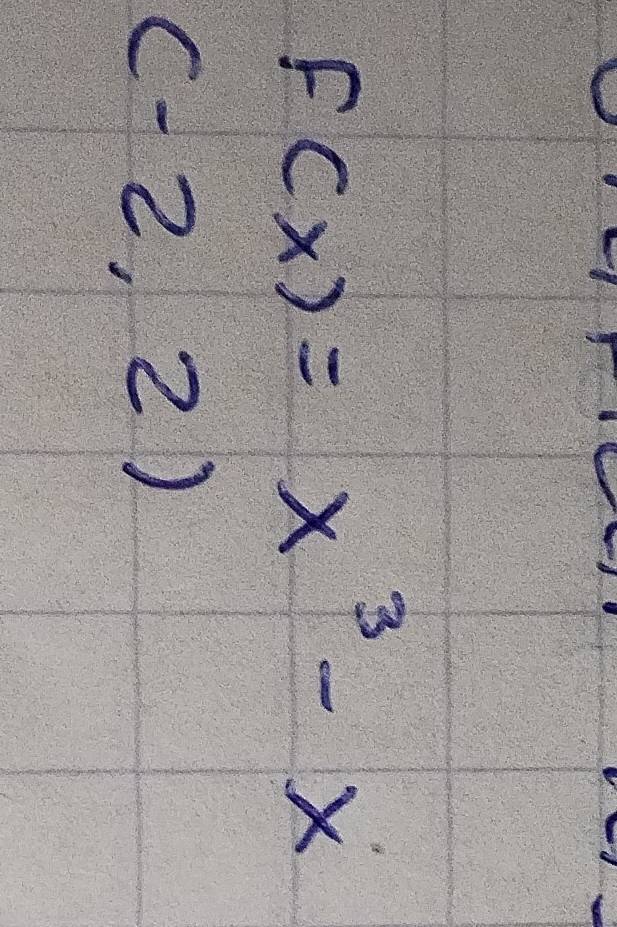 F(x) = x³ - x
(-2, 2)